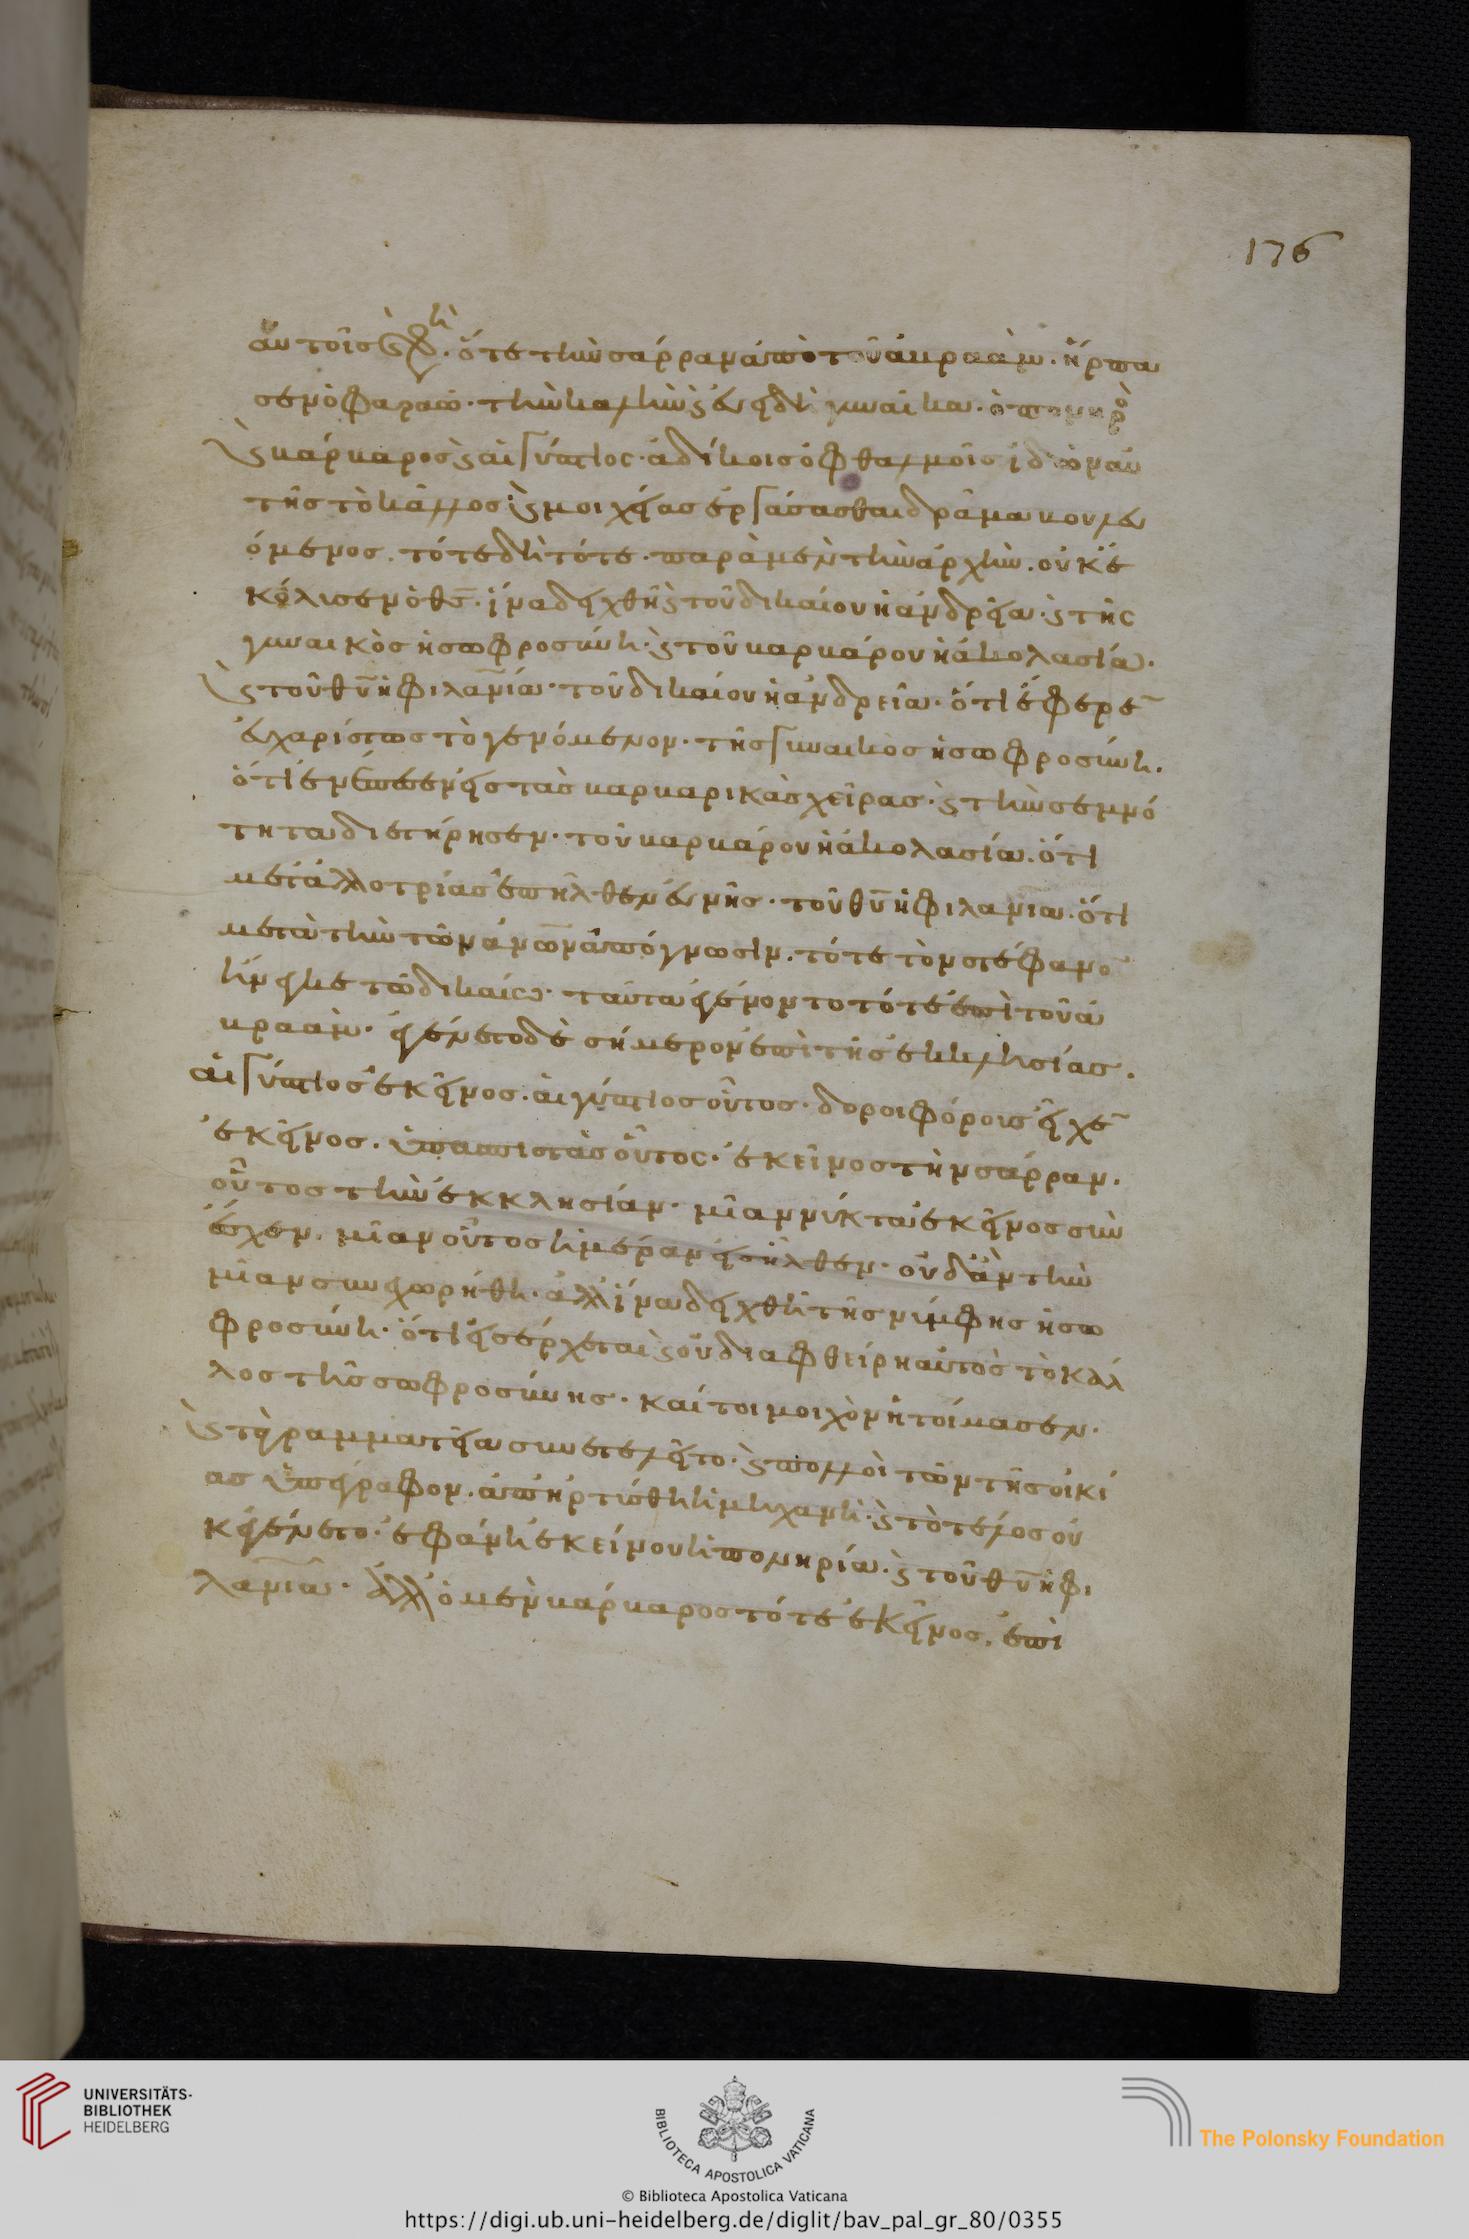 176
αὐτοῖς ὑπῆρχ. ὅτε τὴν σάρραν ἀπὸ τοῦ ἀβραάμ. ἥρπα
σεν ὁ φαραώ. τὴν καλὴν ϗ εὐειδῆ γυναῖκα. ὁ πονηρὸ
ϗ βάρβαρος ϗ αἰγύπτιος. ἀδίκοις ὀφθαλμοῖς ἰδὼν αὐ
τῆς τὸ κάλλος. ϗ μοιχείας ἐργάσασθαι δρᾶμα βουλευ
όμενος. τότε δὴ τότε. παρὰ μὲν τὴν ἀρχὴν. οὐκ ἐ
κόλισεν ὁ θς. ἵνα δειχθῇ ϗ τοῦ δικαίου ἡ ἀνδρεία. ϗ τῆς
γυναικὸς ἡ σωφροσύνη. ϗ τοῦ βαρβάρου ἡ ἀκολασία.
ϗ τοῦ θυ ἡ φιλανια. τοῦ δικαίου ἡ ἀνδρεία. ὅτι ἔφερε
εὐχαρίστως τὸ γενόμενον. τῆς γυναικὸς ἡ σωφροσύνη.
ὅτι ἐνέπεσεν εἰς τὰς βαρβαρικὰς χεῖρας. ϗ τὴν σεμνό
τητα διετήρησεν. τοῦ βαρβάρου ἡ ἀκολασία. ὅτι
μετ' ἀλλοτρίας ἐπῆλθεν εὐνῆς. τοῦ θυ ἡ φιλανια. ὅτι
μετὰ τὴν τῶν ἀνων ἀπόγνωσιν. τότε τὸν στέφανο
ἤνεγκε τῷ δικαίῳ. ταῦτα ἐγένοντο τότε ἐπὶ τοῦ ἀ
βραάμ. ἐγένετο δὲ σήμερον ἐπὶ τῆς ἐκκλησίας.
αἰγύπτιος ἐκεῖνος. αἰγύπτιος οὗτος. δοροιφόροις εἶχε
ἐκεῖνος. ὑπασπιστὰς οὗτος. ἐκεῖνος τὴν σάρραν.
οὗτος τὴν ἐκκλησίαν. μίαν νύκτα ἐκεῖνος συν
έσχεν. μίαν οὗτος ἡμέραν εἰσῆλθεν. οὐδ' ἂν τὴν
μίαν συνεχωρήθη. ἀλλ' ἵνα δειχθῇ τῆς νύμφης ἡ σω
φροσύνη. ὅτι εἰσέρχεται ϗ οὐ διαφθείρη αὐτὸς τὸ κάλ
λος τῆς σωφροσύνης. καίτοι μοιχὸν ἡτοίμασεν.
ϗ τὰ γραμματεῖα συνετελεῖτο. ϗ πολλοὶ τῶν τῆς οἰκί
ας ὑπέγραφον. ἀπηρτίσθη ἡ μηχανὴ. ϗ τὸ τέλος οὐ
κ ἐγένετο. ἐφάνη ἐκείνου ἡ πονηρία. ϗ τοῦ θυ ἡ φι
λανια. ἀλλ' ὁ μὲν βάρβαρος τότε ἐκεῖνος. ἐπὶ
UNIVERSITÄTS-
BIBLIOTHEK
HEIDELBERG
BIBLIOTECA APOSTOLICA VATICANA
The Polonsky Foundation
© Biblioteca Apostolica Vaticana
https://digi.ub.uni-heidelberg.de/diglit/bav_pal_gr_80/0355